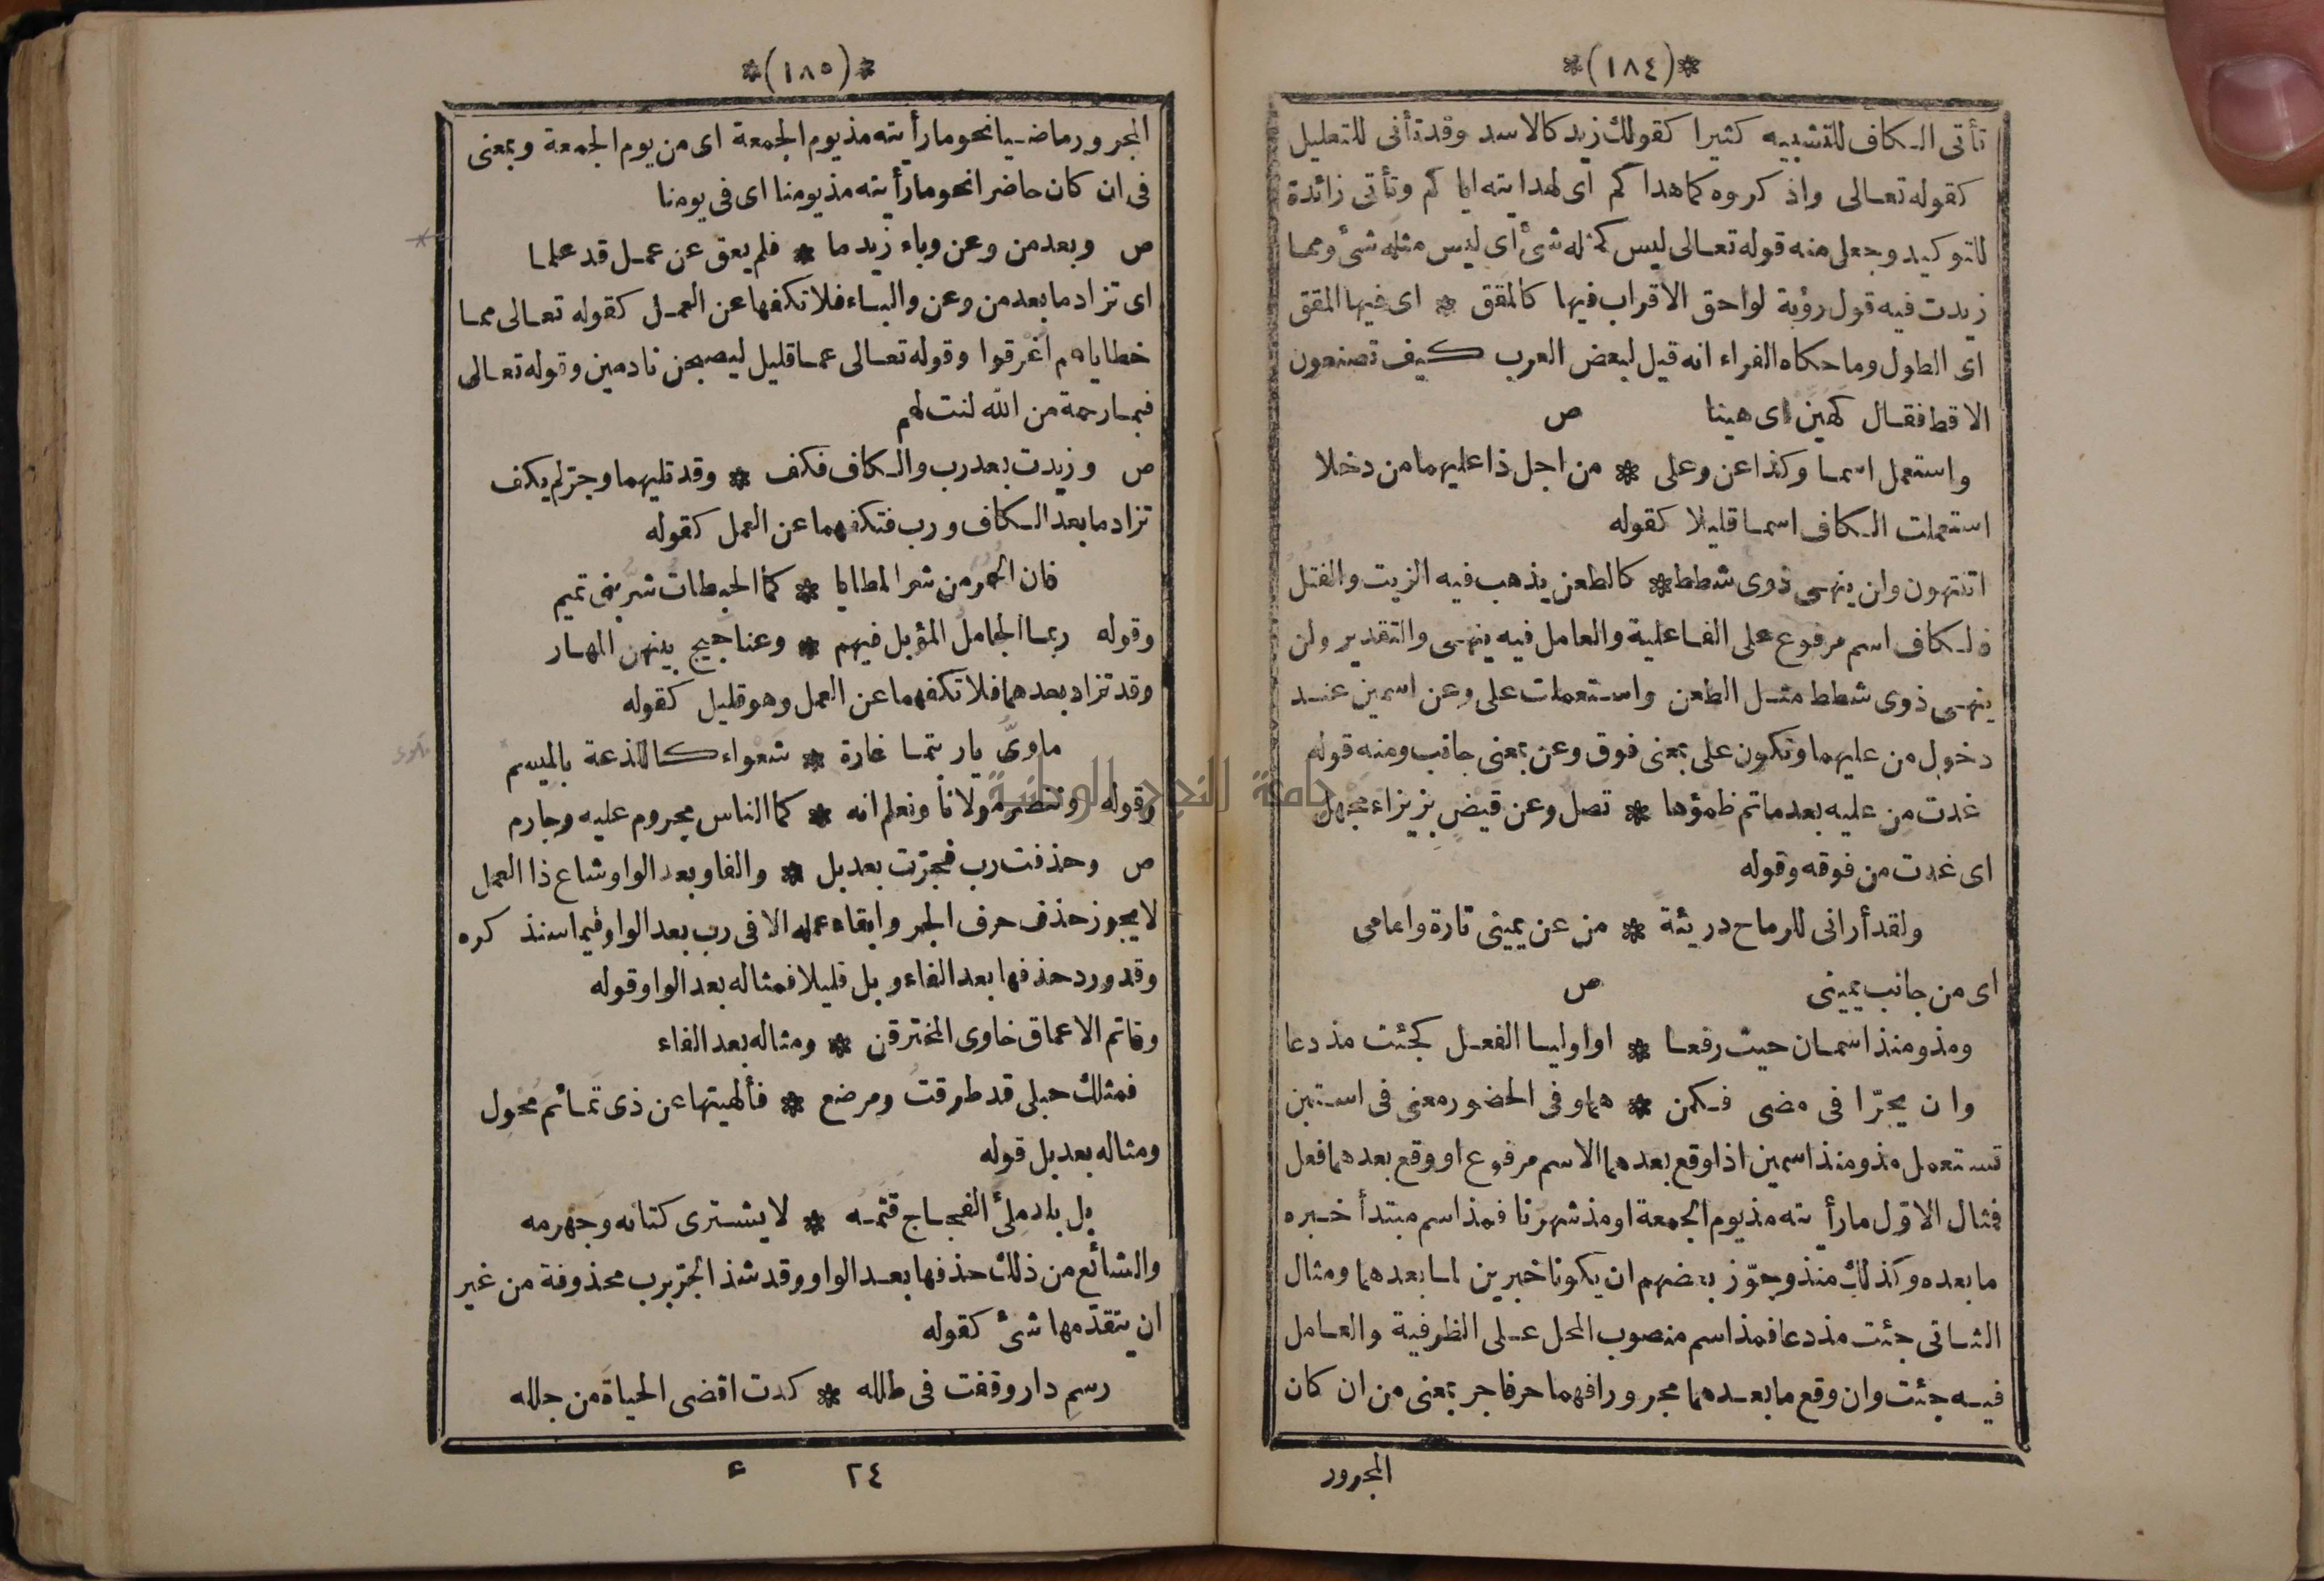 *(١٨٤)*
تأتى الكاف للتشبيه كثيرا كقولك زيد كالاسد وقد تأتى للتعليل
كقوله تعالى واذكروه كما هداكم اى لهدايته اياكم وتأتى زائدة
للتوكيد وجعل منه قوله تعالى ليس كمثله شئ اى ليس مثله شئ ومما
زيدت فيه قول رؤبة لواحق الاقراب فيها كالمقق * اى فيها المقق
اى الطول وما حكاه الفراء انه قيل لبعض العرب كيف تصنعون
الاقط فقال كهين اى هينا ص
واستعمل اسما وكذا عن وعلى * من اجل ذا عليهما من دخلا
استعملت الكاف اسما قليلا كقوله
اتنتهون ولن ينهى ذوى شطط * كالطعن يذهب فيه الزيت والفتل
فالكاف اسم مرفوع على الفاعلية والعامل فيه ينهى والتقدير ولن
ينهى ذوى شطط مثل الطعن واستعملت على وعن اسمين عند
دخول من عليهما وتكون على بمعنى فوق وعن بمعنى جانب ومنه قوله
غدت من عليه بعد ما تم ظمؤها * تصل وعن قيض بزيزاء مجهل
اى غدت من فوقه وقوله
ولقد أرانى للرماح دريئة * من عن يمينى تارة وامامى
اى من جانب يمينى ص
ومذ ومنذ اسمان حيث رفعا * او اوليا الفعل كجئت مذ دعا
وان يجرّا فى مضى فكمن * هما وفى الحضور معنى فى استبن
تستعمل مذ ومنذ اسمين اذا وقع بعدهما الاسم مرفوع او وقع بعدهما فعل
فمثال الاوّل ما رأيته مذ يوم الجمعة او مذ شهرنا فمذ اسم مبتدأ خبره
ما بعده وكذلك منذ وجوّز بعضهم ان يكونا خبرين لما بعدهما ومثال
الثانى جئت مذ دعا فمذ اسم منصوب المحل على الظرفية والعامل
فيه جئت وان وقع ما بعدهما مجرورا فهما حرفا جر بمعنى من ان كان
المجرور
*(١٨٥)*
المجرور ماضيا نحو ما رأيته مذ يوم الجمعة اى من يوم الجمعة وبمعنى
فى ان كان حاضرا نحو ما رأيته مذ يومنا اى فى يومنا
ص وبعد من وعن وباء زيد ما * فلم يعق عن عمل قد علما
اى تزاد ما بعد من وعن والباء فلا تكفها عن العمل كقوله تعالى مما
خطاياهم اغرقوا وقوله تعالى عما قليل ليصبحن نادمين وقوله تعالى
فبما رحمة من الله لنت لهم
ص وزيدت بعد رب والكاف فكف * وقد تليهما وجرّ لم يكف
تزاد ما بعد الكاف ورب فتكفهما عن العمل كقوله
فان الحمر من شر المطايا * كما الحبطات شرّ بنى تميم
وقوله ربما الجامل المؤبل فيهم * وعناجيج بينهن المهار
وقد تزاد بعدهما فلا تكفهما عن العمل وهو قليل كقوله
ماوىّ يا ربتما غارة * شعواء كاللذعة بالميسم
وقوله وننصر مولانا ونعلم انه * كما الناس مجروم عليه وجارم
ص وحذفت رب فجرّت بعد بل * والفا وبعد الواو شاع ذا العمل
لا يجوز حذف حرف الجر وابقاء عمله الا فى رب بعد الواو فيما سنذكره
وقد ورد حذفها بعد الفاء وبل قليلا فمثاله بعد الواو قوله
وقاتم الاعماق خاوى المخترقن * ومثاله بعد الفاء
فمثلك حبلى قد طرقت ومرضع * فألهيتها عن ذى تمائم محول
ومثاله بعد بل قوله
بل بلد ملئ الفجاج قتمه * لا يشترى كتانه وجهرمه
والشائع من ذلك حذفها بعد الواو وقد شذ الجرّ برب محذوفة من غير
ان يتقدّمها شئ كقوله
رسم دار وقفت فى طلله * كدت اقضى الحياة من جلله
٢٤ ء
جامعة النجاح الوطنية